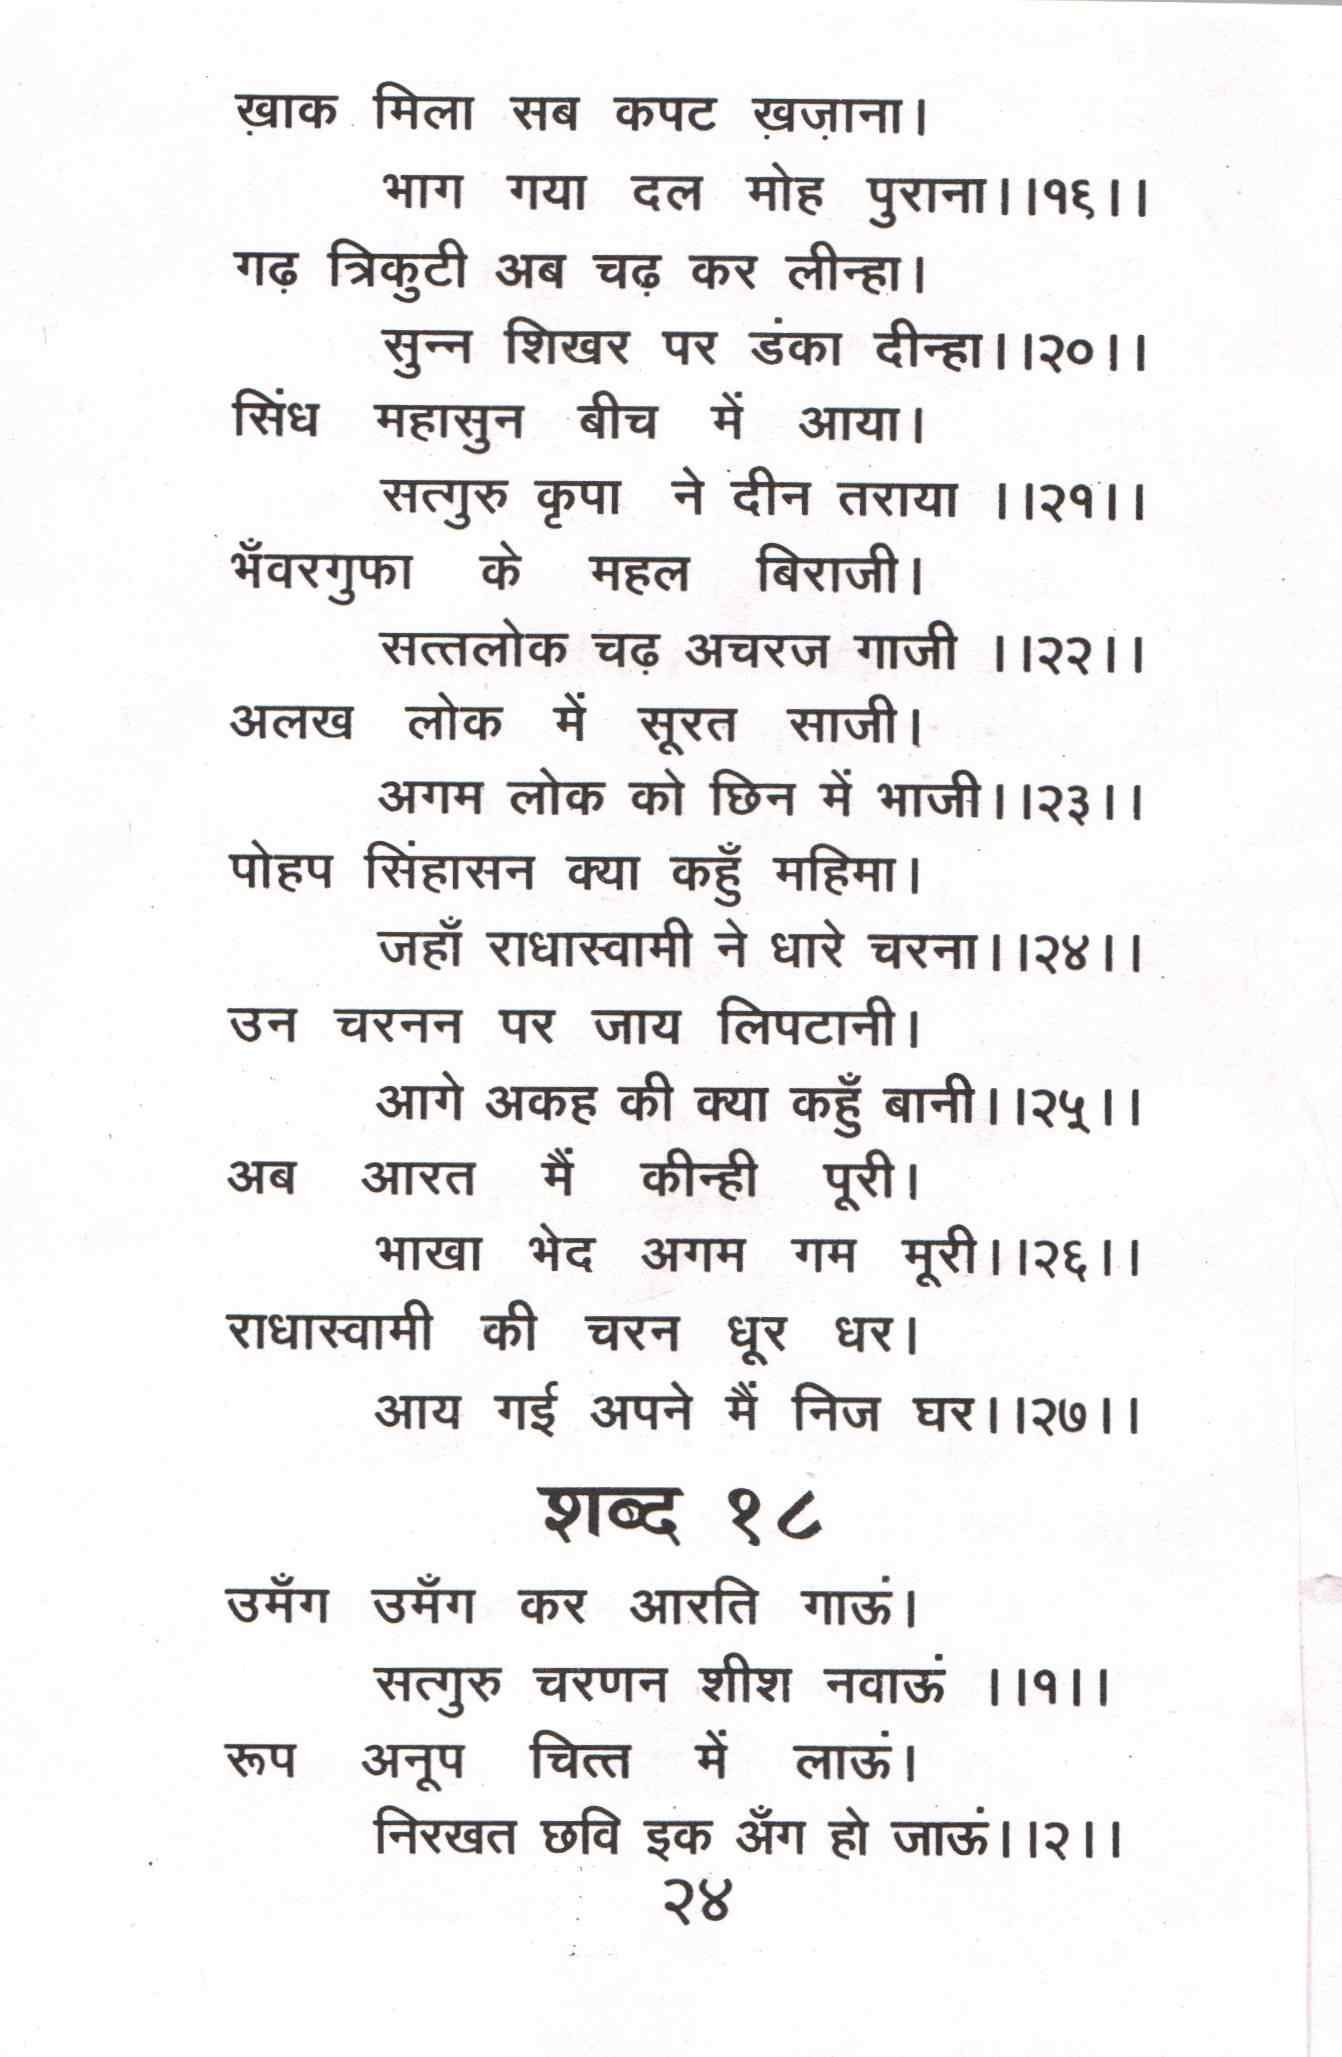 ख़ाक मिला सब कपट ख़ज़ाना।
भाग गया दल मोह पुराना।।१९।।
गढ़ त्रिकुटी अब चढ़ कर लीन्हा।
सुन्न शिखर पर डंका दीन्हा।।२०।।
सिंध महासुन बीच में आया।
सत्गुरु कृपा ने दीन तराया ।।२१।।
भँवरगुफा के महल बिराजी।
सत्तलोक चढ़ अचरज गाजी ।।२२।।
अलख लोक में सूरत साजी।
अगम लोक को छिन में भाजी।।२३।।
पोहप सिंहासन क्या कहुँ महिमा।
जहाँ राधास्वामी ने धारे चरना।।२४।।
उन चरनन पर जाय लिपटानी।
आगे अकह की क्या कहुँ बानी।।२५।।
अब आरत मैं कीन्ही पूरी।
भाखा भेद अगम गम मूरी।।२६।।
राधास्वामी की चरन धूर धर।
आय गई अपने मैं निज घर।।२७।।
शब्द १८
उमँग उमँग कर आरति गाऊं।
सत्गुरु चरणन शीश नवाऊं ।।१।।
रूप अनूप चित्त में लाऊं।
निरखत छवि इक अँग हो जाऊं।।२।।
२४